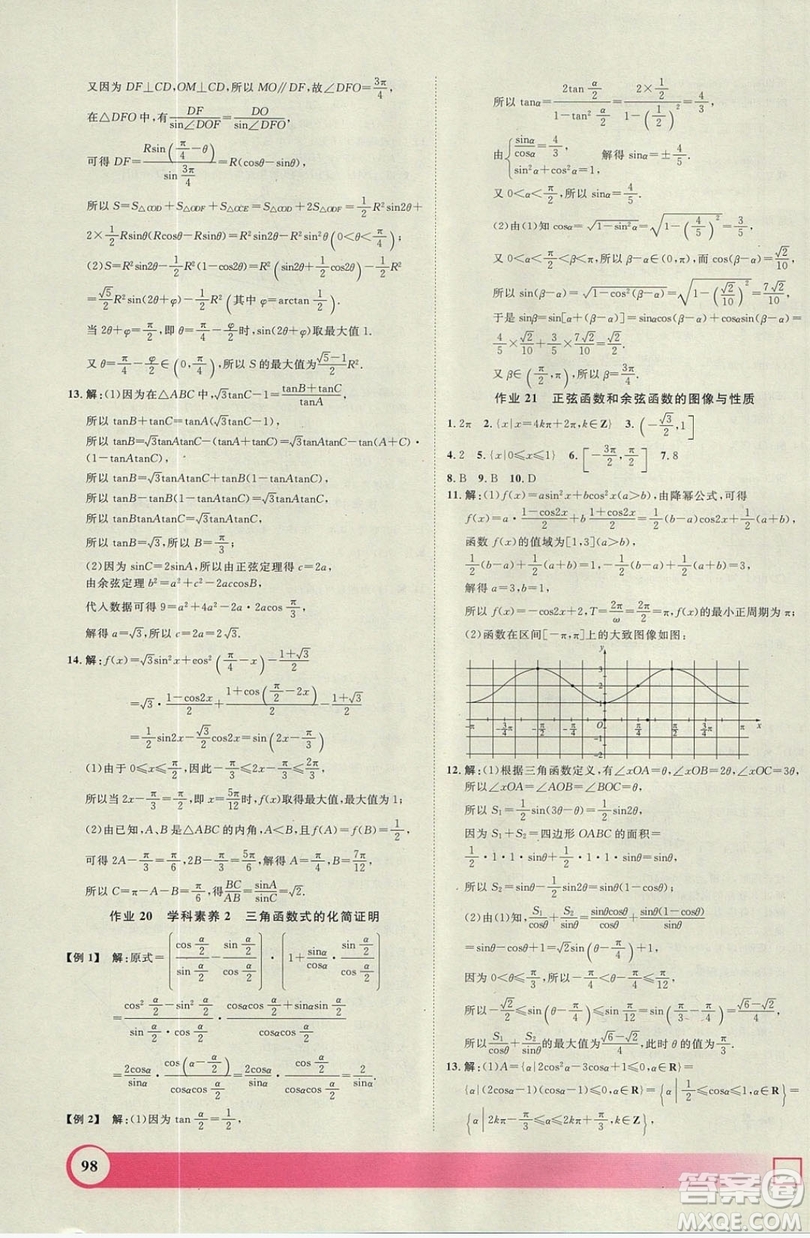 又因为 DF⊥CD,OM⊥CD,所以 MO∥DF,故∠DFO=3π/4,
在△DFO 中,有 DF/sin∠DOF=DO/sin∠DFO,
可得 DF=Rsin(π/4-θ)/sin 3π/4=R(cosθ-sinθ),
所以 S=S△COD+S△ODF+S△OCE=S△COD+2S△ODF=1/2 R²sin2θ+
2×1/2 Rsinθ(Rcosθ-Rsinθ)(0<θ<π/4);
(2)S=R²sin2θ+1/2 R²cos2θ-1/2 R²=R²(sin2θ+1/2 cos2θ)-1/2 R²
=√5/2 R²sin(2θ+φ)-1/2 R²(其中 φ=arctan 1/2),
当 2θ+φ=π/2,即 θ=π/4-φ/2时,sin(2θ+φ)取最大值 1.
又 θ=π/4-φ/2∈(0,π/4),所以 S 的最大值为 (√5-1)/2 R².
13. 解:(1)因为在△ABC 中,√3tanC-1=(tanB+tanC)/tanA,
所以 tanB+tanC=tanA(√3tanC-1),
所以-tan(A+C)+tanC=√3tanAtanC-tanA,
所以 tan(A+C)-tanC=tanA-√3tanAtanC,
所以(tanA+tanC)/(1-tanAtanC)=tanA+tanC-√3tanAtanC,
所以 tanA+tanC=(tanA+tanC)(1-tanAtanC)-√3tanAtanC·
(1-tanAtanC),
所以(tanA+tanC)tanAtanC/(tanAtanC-1)=√3tanAtanC,
所以 tanBtanAtanC=√3tanAtanC,
所以 tanB=√3,所以 B=π/3;
(2)因为 sinC=2sinA,所以由正弦定理得 c=2a,
由余弦定理 b²=a²+c²-2accosB,
代人数据可得 9=a²+4a²-2a·2acos π/3,
解得 a=√3,所以 c=2a=2√3.
14. 解:f(x)=√3sin²x+cos²(π/4-x)-(1+√3)/2
=√3·(1-cos2x)/2+(1+cos(π/2-2x))/2-(1+√3)/2
=1/2 sin2x-√3/2 cos2x=sin(2x-π/3).
(1)由于 0≤x≤π/2,因此-π/3≤2x-π/3≤2π/3,
所以当 2x-π/3=π/2,即 x=5π/12时,f(x)取最大值,最大值为 1;
(2)由已知,A、B 是△ABC 的内角,A<B,且 f(A)=f(B)=1/2,
可得 2A-π/3=π/6,2B-π/3=5π/6,解得 A=π/4,B=7π/12,
所以 C=π-A-B=π/6,得 BC/AB=sinA/sinC=√2.
作业 20 学科素养 2 三角函数式的化简证明
【例 1】 解:原式=(cos α/2/sin α/2-sin α/2/cos α/2)·(1+sinαsin α/2/(cosαcos α/2))
=(cos² α/2-sin² α/2)/(sin α/2 cos α/2)·(cosαcos α/2+sinαsin α/2)/(cosαcos α/2)
=2cosα/sinα·cos(α-α/2)/(cosαcos α/2)=2cosα/sinα·cos α/2/(cosαcos α/2)=2/sinα.
【例 2】 解:(1)因为 tan α/2=1/2,
98
所以 tanα=2tan α/2/(1-tan² α/2)=2×1/2/(1-(1/2)²)=4/3.
由{sinα/cosα=4/3, sin²α+cos²α=1, 解得 sinα=±4/5.
又 0<α<π/2,所以 sinα=4/5.
(2)由(1)知 cosα=√(1-sin²α)=√(1-(4/5)²)=3/5,
又 0<α<π/2<β<π,β-α∈(0,π),而 cos(β-α)=√2/10,
所以 sin(β-α)=√(1-cos²(β-α))=√(1-(√2/10)²)=7√2/10,
于是 sinβ=sin[α+(β-α)]=sinαcos(β-α)+cosαsin(β-α)=
4/5×√2/10+3/5×7√2/10=√2/2.
又 β∈(π/2,π),所以 β=3π/4.
作业 21 正弦函数和余弦函数的图像与性质
1. 2π 2. {x|x=4kπ+2π,k∈Z} 3. (-√3/2,1]
4. 2 5. {x|0≤x≤1} 6. [-3π/2,π/2] 7. 8
8. B 9. B 10. D
11. 解:(1)f(x)=asin²x+bcos²x(a>b),由降幂公式,可得
f(x)=a·(1-cos2x)/2+b(1+cos2x)/2=1/2(b-a)cos2x+1/2(a+b),
函数 f(x)的值域为[1,3](a>b),
1/2(b-a)+1/2(a+b)=1,-1/2(b-a)+1/2(a+b)=3,
解得 a=3,b=1,
所以 f(x)=-cos2x+2,T=2π/ω=2π/2=π,f(x)的最小正周期为 π;
(2)函数在区间[-π,π]上的大致图像如图:
y
3
2
1
-π -3π/4 -π/2 -π/4 O π/4 π/2 3π/4 π x
-1
-2
12. 解:(1)根据三角函数定义,有∠xOA=θ,∠xOB=2θ,∠xOC=3θ,
所以∠xOA=∠AOB=∠BOC=θ,
所以 S₁=1/2 sin(3θ-θ)=1/2 sin2θ,
因为 S₁+S₂=四边形 OABC 的面积=
1/2·1·1·sinθ+1/2·1·1·sinθ=sinθ,
所以 S₂=sinθ-1/2 sin2θ;
(2)由(1)知 S₁/cosθ+S₂/sinθ=sinθcosθ/cosθ+(sinθ-sinθcosθ)/sinθ
=sinθ-cosθ+1=√2sin(θ-π/4)+1,
因为 0<θ≤π/3,所以-π/4<θ-π/4≤π/12,
所以-√2/2<sin(θ-π/4)≤sin(π/3-π/4)=(√6-√2)/4,
所以 S₁/cosθ+S₂/sinθ 的最大值为 (√3+1)/2,此时 θ 的值为 π/3.
13. 解:(1)A={α|2cosα≥1,α∈R}={α|cosα≥1/2,α∈R}=
{α|2kπ-π/3≤α≤2kπ+π/3,k∈Z},
答案圈
MXQE.COM